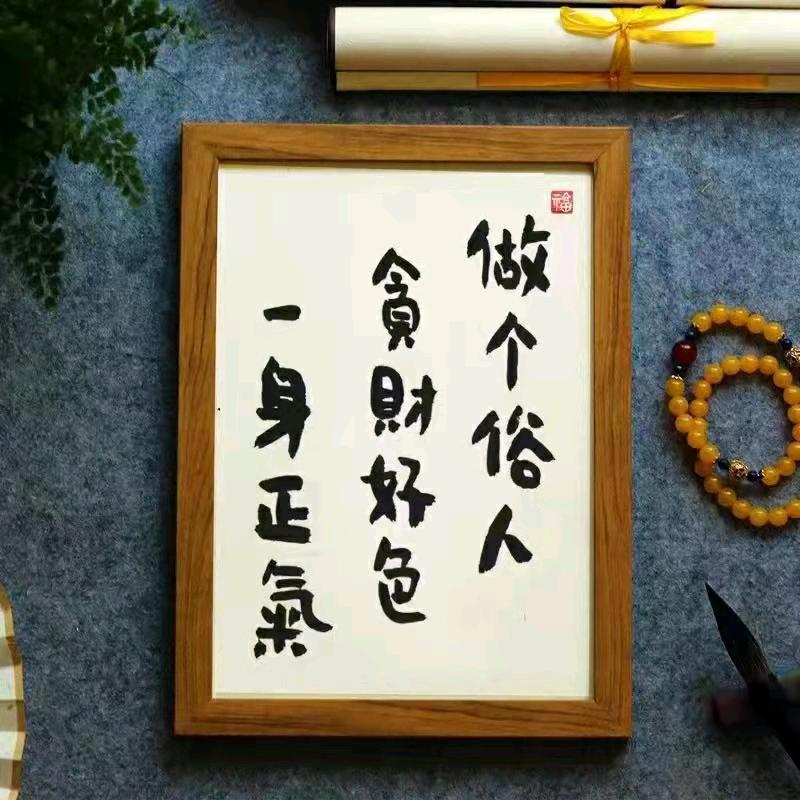 福
做个俗人
貪財好色
一身正氣